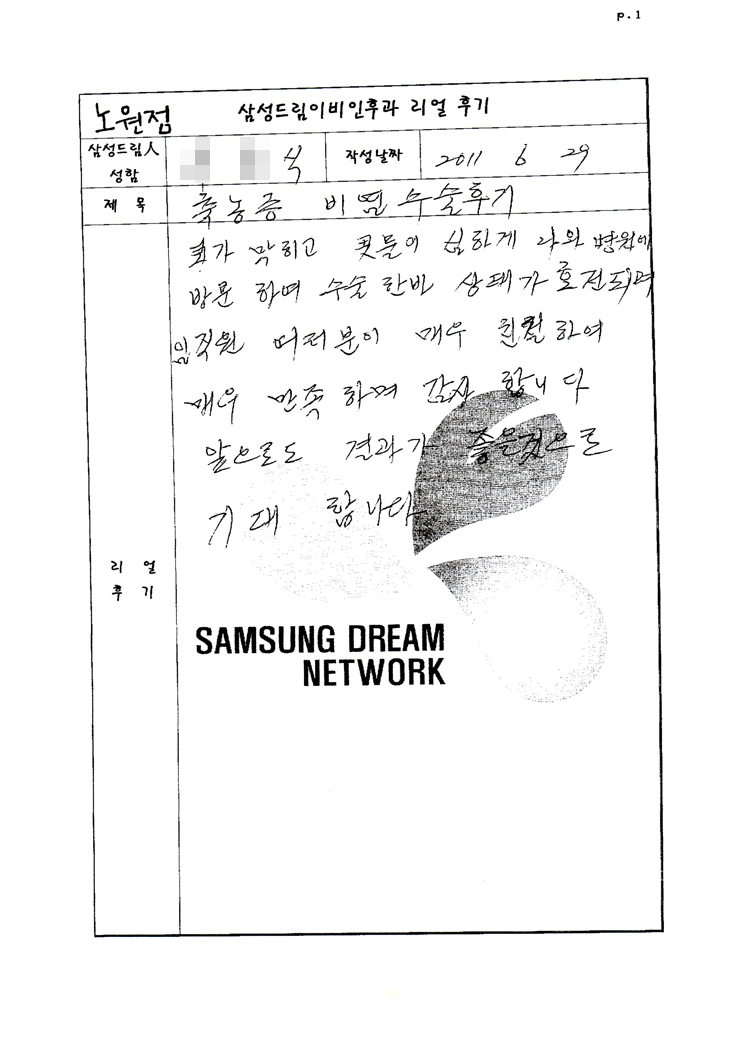 p.1
노원점 삼성드림이비인후과 리얼 후기
삼성드림人
성함
식
작성날짜
2011 6 29
제 목
축농증 비염 수술후기
코가 막히고 콧물이 심하게 나와 병원에
방문 하여 수술 한바 상태가 호전되며
임직원 여러분이 매우 친절하여
매우 만족 하며 감사 합니다
앞으로도 결과가 좋은것으로
기대 합니다
리 얼
후 기
SAMSUNG DREAM
NETWORK